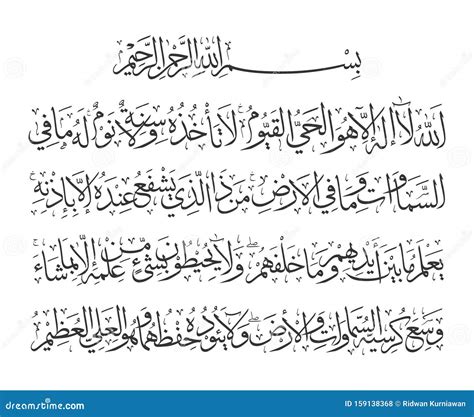 بِسْمِ اللهِ الرَّحْمٰنِ الرَّحِيْمِ
اَللهُ لَا اِلٰهَ اِلَّا هُوَ الْحَيُّ الْقَيُّوْمُ ۚ لَا تَأْخُذُهٗ سِنَةٌ وَّلَا نَوْمٌ ۗ لَهٗ مَا فِى
السَّمٰوَاتِ وَمَا فِى الْاَرْضِ ۗ مَنْ ذَا الَّذِيْ يَشْفَعُ عِنْدَهٗ اِلَّا بِاِذْنِهٖ ۗ
يَعْلَمُ مَا بَيْنَ اَيْدِيْهِمْ وَمَا خَلْفَهُمْ ۚ وَلَا يُحِيْطُوْنَ بِشَيْءٍ مِّنْ عِلْمِهٖٓ اِلَّا بِمَا شَاۤءَ ۚ
وَسِعَ كُرْسِيُّهُ السَّمٰوَاتِ وَالْاَرْضَ ۚ وَلَا يَـُٔوْدُهٗ حِفْظُهُمَا وَهُوَ الْعَلِيُّ الْعَظِيْمُ
dreamstime.com
ID 159138368 © Ridwan Kurniawan